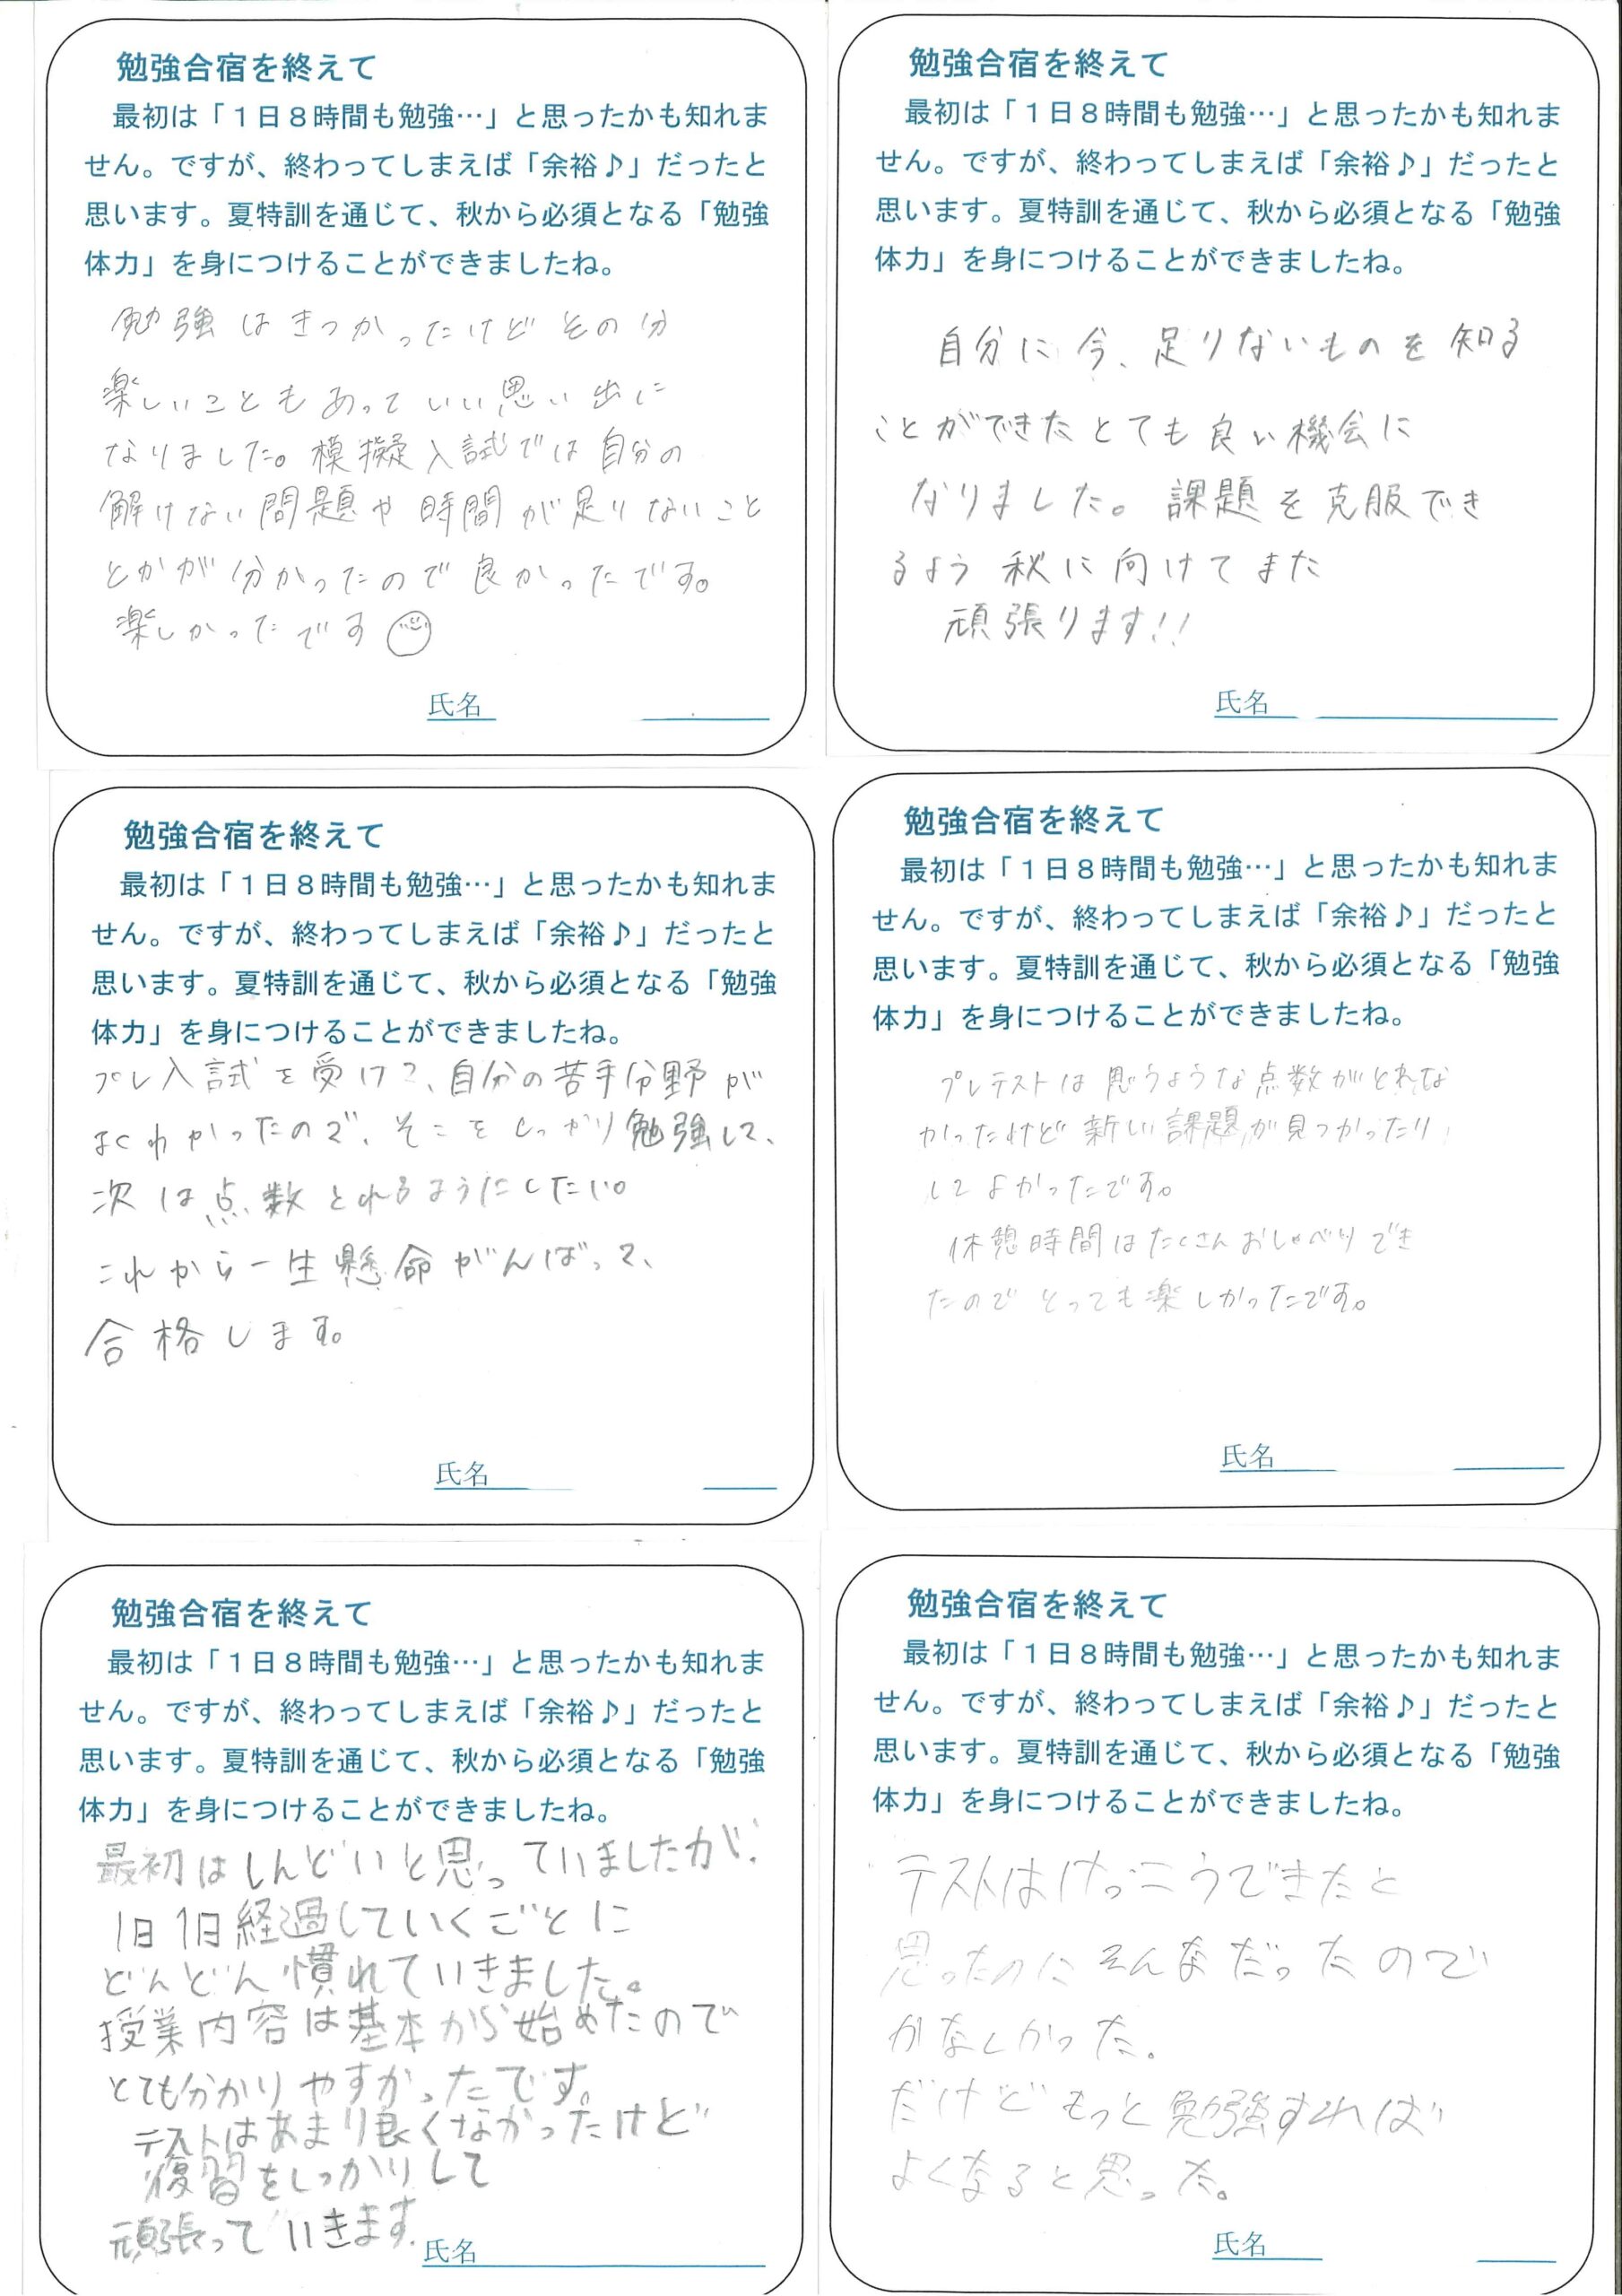 勉強合宿を終えて
最初は「１日８時間も勉強…」と思ったかも知れま
せん。ですが、終わってしまえば「余裕♪」だったと
思います。夏特訓を通じて、秋から必須となる「勉強
体力」を身につけることができましたね。
勉強はきつかったけどその分
楽しいこともあっていい思い出に
なりました。模擬入試では自分の
解けない問題や時間が足りないこと
とかが分かったので良かったです。
楽しかったです
氏名
勉強合宿を終えて
最初は「１日８時間も勉強…」と思ったかも知れま
せん。ですが、終わってしまえば「余裕♪」だったと
思います。夏特訓を通じて、秋から必須となる「勉強
体力」を身につけることができましたね。
自分に今、足りないものを知る
ことができたとても良い機会に
なりました。課題を克服でき
るよう秋に向けてまた
頑張ります!!
氏名
勉強合宿を終えて
最初は「１日８時間も勉強…」と思ったかも知れま
せん。ですが、終わってしまえば「余裕♪」だったと
思います。夏特訓を通じて、秋から必須となる「勉強
体力」を身につけることができましたね。
プレ入試を受けて、自分の苦手分野が
よくわかったので、そこをしっかり勉強して、
次は点数とれるようにしたい。
これから一生懸命がんばって、
合格します。
氏名
勉強合宿を終えて
最初は「１日８時間も勉強…」と思ったかも知れま
せん。ですが、終わってしまえば「余裕♪」だったと
思います。夏特訓を通じて、秋から必須となる「勉強
体力」を身につけることができましたね。
プレテストは思うような点数がとれな
かったけど新しい課題が見つかったり
してよかったです。
休憩時間はたくさんおしゃべりでき
たのでとっても楽しかったです。
氏名
勉強合宿を終えて
最初は「１日８時間も勉強…」と思ったかも知れま
せん。ですが、終わってしまえば「余裕♪」だったと
思います。夏特訓を通じて、秋から必須となる「勉強
体力」を身につけることができましたね。
最初はしんどいと思っていましたが、
1日1日経過していくごとに
どんどん慣れていきました。
授業内容は基本から始めたので
とても分かりやすかったです。
テストはあまり良くなかったけど
復習をしっかりして
頑張っていきます。
氏名
勉強合宿を終えて
最初は「１日８時間も勉強…」と思ったかも知れま
せん。ですが、終わってしまえば「余裕♪」だったと
思います。夏特訓を通じて、秋から必須となる「勉強
体力」を身につけることができましたね。
テストはけっこうできたと
思ったのにそんなだったので
かなしかった。
だけどもっと勉強すれば
よくなると思った。
氏名